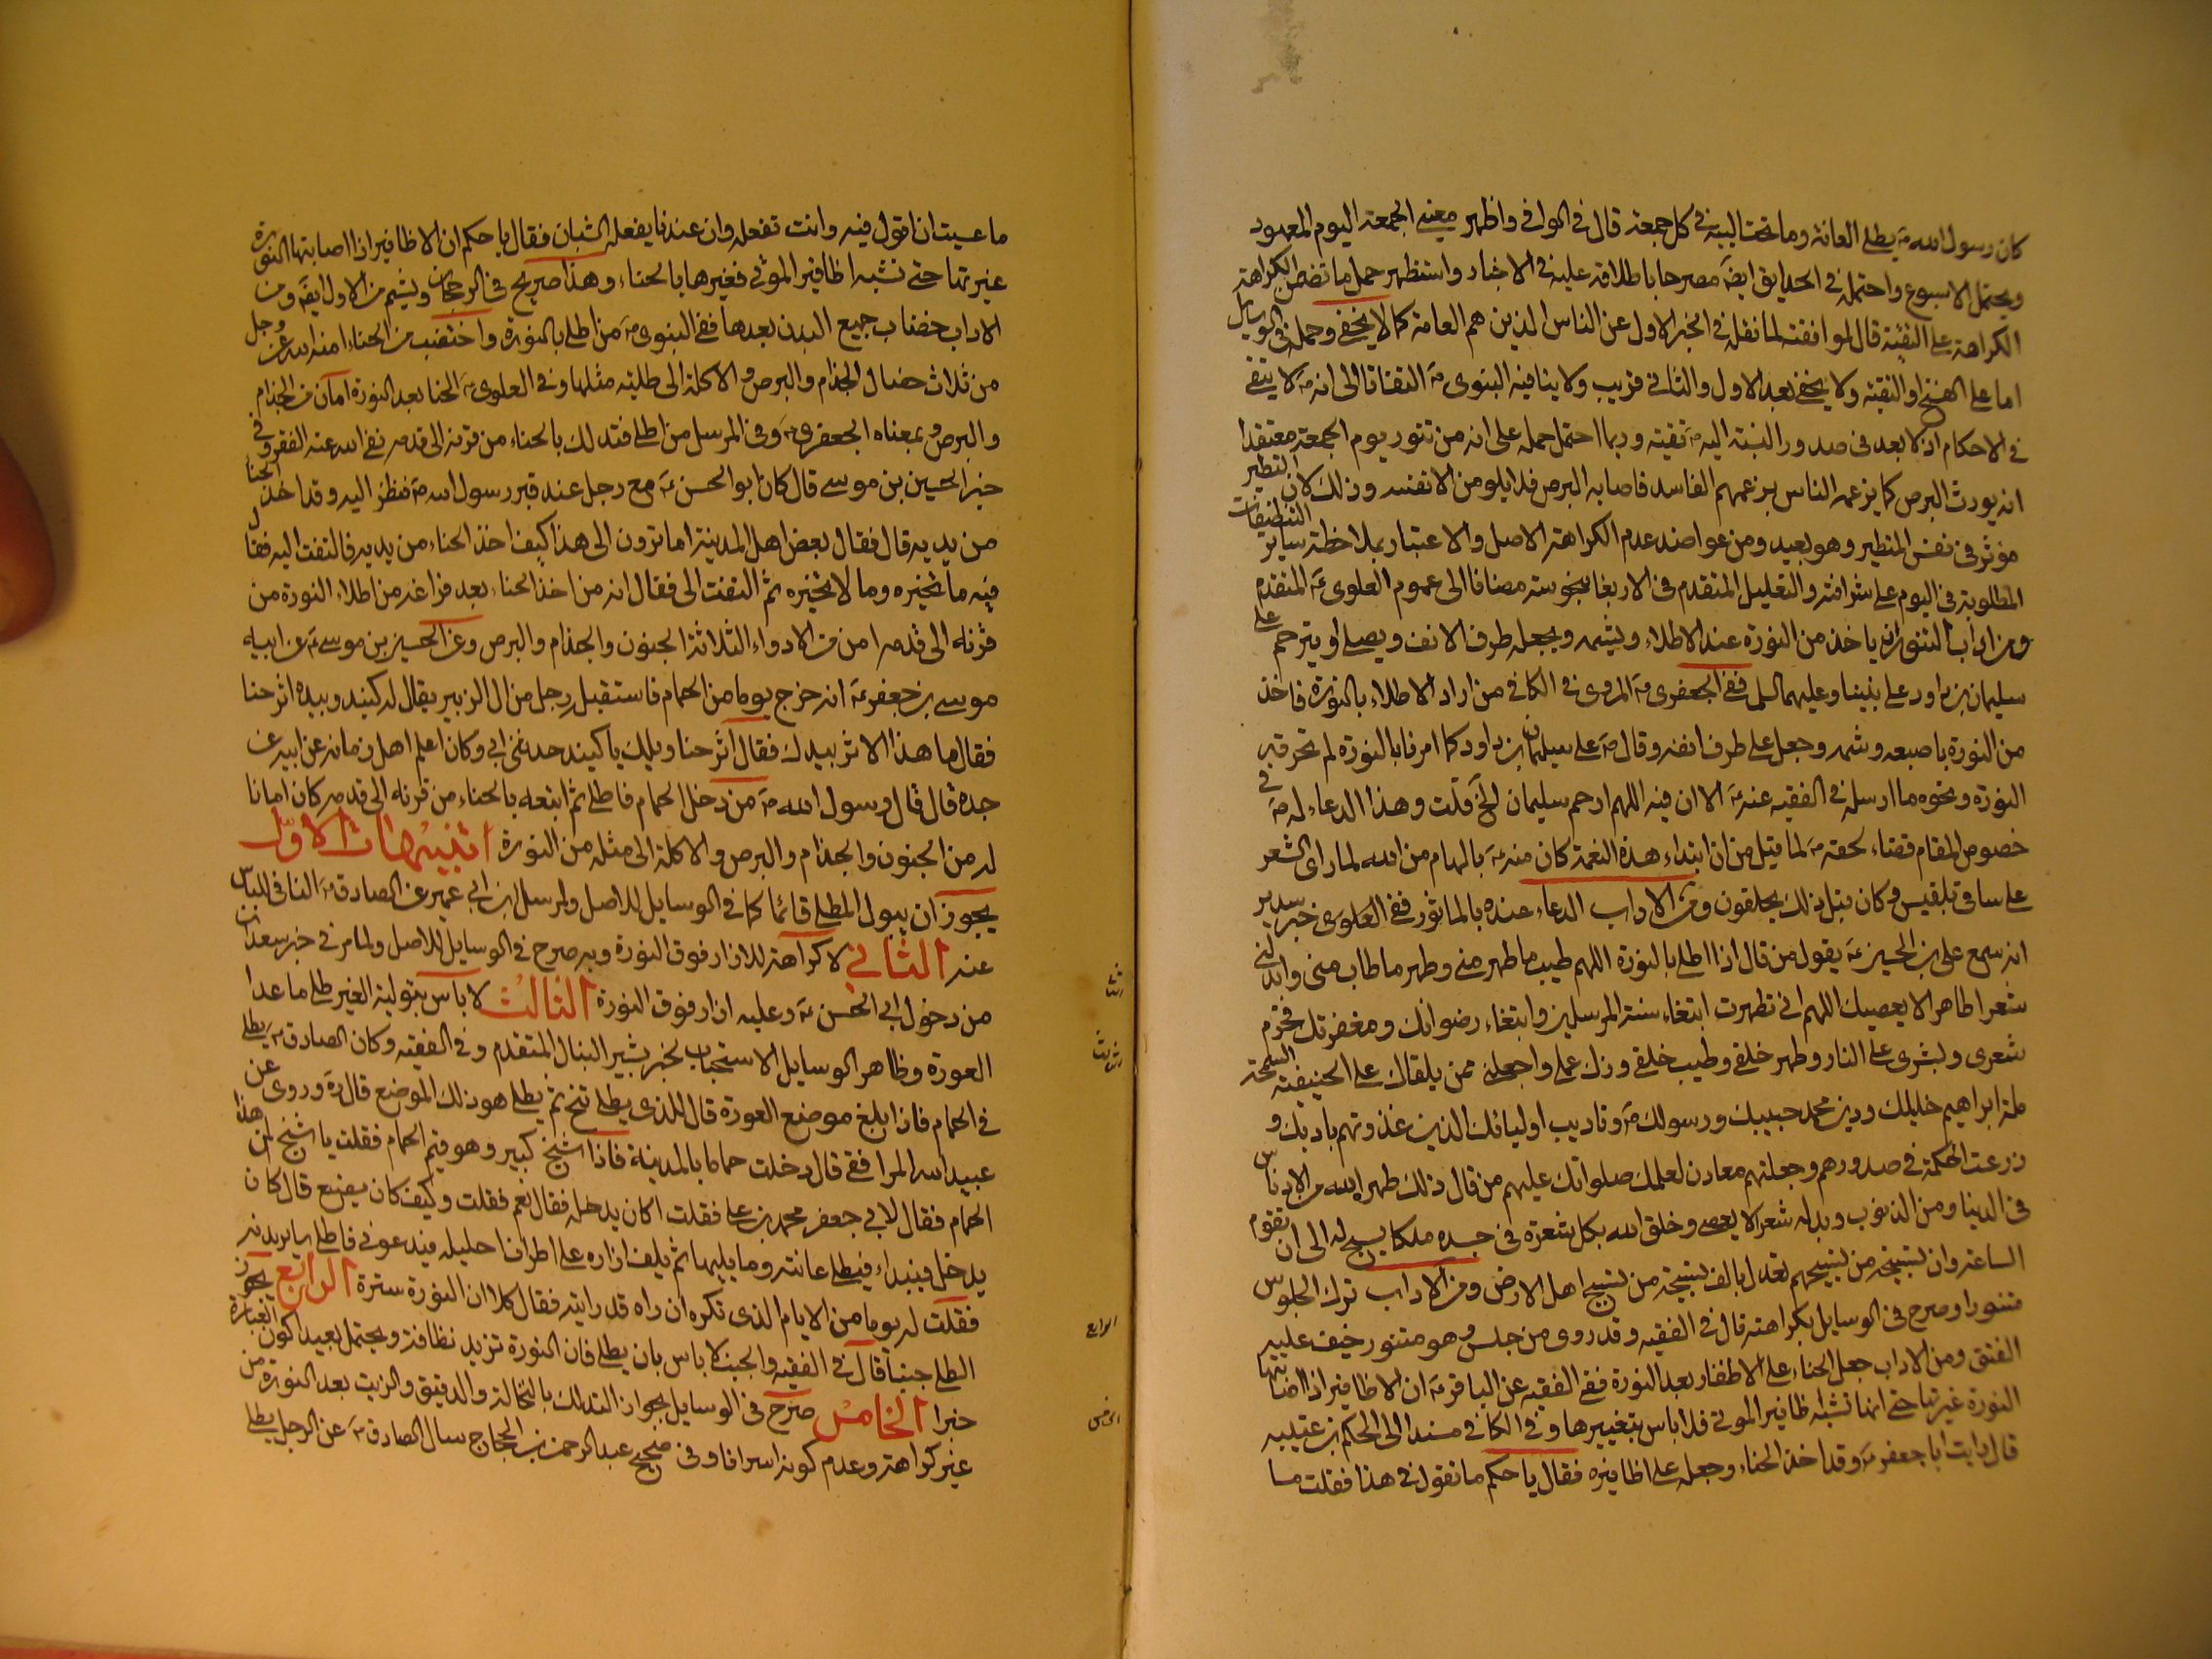 كان رسول الله ص يطلي العانة وما تحت اليته في كل جمعة قال في الوافي واظهر معنيي الجمعة اليوم المعهود
ويحتمل الاسبوع واحتمله في الحدايق ايضا مصرحا باطلاقه عليه في الاخبار واستظهر حمل ما تضمن الكراهة
الكراهة على التقية قال لموافقته لما نقله في الخبر الاول عن الناس الذين هم العامة كما لا يخفى وحمله في الوسايل
اما على النسخ او التقية ولا يخفى بعد الاول والثاني قريب ولا ينافيه النبوي ص التفاتا الى انه ص لا يتقي
في الاحكام اذ لا بعد في صدور النسبة اليه ص تقية وربما احتمل حمله على انه من تنور يوم الجمعة معتقدا
انه يورث البرص كما يزعمه الناس بزعمهم الفاسد فاصابه البرص فلا يلومن الا نفسه وذلك لان التطير
مؤثر في نفس المتطير وهو بعيد ومن عواضد عدم الكراهة الاصل والاعتبار بملاحظة ساير التنظيفات
المطلوبة في اليوم على شرافته والتعليل المتقدم في الاربعا بنحوسته مضافا الى عموم العلوي ع المتقدم
ومن اداب التنور ان ياخذ من النورة عند الاطلاء ويشمه ويجعله طرف الانف ويصلي او يترحم على
سليمان بن داود على نبينا وعليهما السلم ففي الجعفري ع المروي في الكافي من اراد الاطلاء بالنورة فاخذ
من النورة باصبعه وشمه وجعل على طرف انفه وقال ص على سليمان بن داود كما امرنا بالنورة لم تحرقه
النورة ونحوه ما ارسله في الفقيه عنه ع الا ان فيه اللهم ارحم سليمان الخ قلت وهذا الدعاء له ع في
خصوص المقام قضاء لحقه ع لما قيل من ان ابتداء هذه النعمة كان منه ع بالهام من الله لما راى الشعر
على ساقي بلقيس وكان قبل ذلك يحلقون ومن الاداب الدعاء عنده بالماثور ففي العلوي خبر سدير
انه سمع علي بن الحسين ع يقول من قال اذا اطلى بالنورة اللهم طيب ما طهر مني وطهر ما طاب مني وابدلني
شعرا طاهرا لا يعصيك اللهم اني تطهرت ابتغاء سنة المرسلين وابتغاء رضوانك ومغفرتك فحرم
شعري وبشري على النار وطهر خلقي وطيب خلقي وزك عملي واجعلني ممن يلقاك على الحنيفية السمحة
ملة ابراهيم خليلك ودين محمد حبيبك ورسولك ص وتاديب اوليائك الذين غذوتهم بادبك و
زرعت الحكمة في صدورهم وجعلتهم معادن لعلمك صلواتك عليهم من قال ذلك طهره الله من الادناس
في الدنيا ومن الذنوب وبدله شعرا لا يعصي وخلق الله بكل شعرة في جسده ملكا يسبح له الى ان تقوم
الساعة وان تسبيحة من تسبيحهم تعدل بالف تسبيحة من تسبيح اهل الارض ومن الاداب ترك الجلوس
متنورا وصرح في الوسايل بكراهته قال في الفقيه وقد روى من جلس وهو متنور خيف عليه
الفتق ومن الاداب جعل الحناء على الاظفار بعد النورة ففي الفقيه عن الباقر ع ان الاظافير اذا اصابتها
النورة غيرتها حتى انها تشبه اظافير الموتى فلا باس بتغييرها وفي الكافي مسندا الى الحكم بن عتيبه
قال رايت ابا جعفر ع وقد اخذ الحناء وجعله على اظافيره فقال يا حكم ما تقول في هذا فقلت ما
ما عسيت ان اقول فيه وانت تفعله وان عندنا يفعله الشبان فقال يا حكم ان الاظافير اذا اصابتها النورة
غيرتها حتى تشبه اظافير الموتى فغيرها بالحناء وهذا صريح في الرجحان ويشم من الاول ايضا ومن
الاداب خضاب جميع البدن بعدها ففي النبوي ص من اطلى بالنورة واختضب من الحناء امنه الله عز وجل
من ثلاث خصال الجذام والبرص والاكلة الى طلية مثلها وفي العلوي ع الحنا بعد النورة امان من الجذام
والبرص وبمعناه الجعفري ع وفي المرسل من اطلى فتدلك بالحناء من قرنه الى قدمه نفى الله عنه الفقر وفي
خبر الحسين بن موسى قال كان ابو الحسن ع مع رجل عند قبر رسول الله ص فنظر اليه وقد اخذ الحنا
من يديه قال فقال بعض اهل المدينة اما ترون الى هذا كيف اخذ الحناء من يديه فالتفت اليه فقال
فيه ما تخبره وما لا تخبره ثم التفت الى فقال انه من اخذ الحناء بعد فراغه من اطلاء النورة من
قرنه الى قدمه امن من الادواء الثلاثة الجنون والجذام والبرص وعن الحسين بن موسى ع عن ابيه
موسى بن جعفر ع انه خرج يوما من الحمام فاستقبله رجل من ال الزبير يقال له كنيد وبيده اثر حنا
فقال ما هذا الاثر بيدك فقال اثر حنا ويلك يا كنيد حدثني ابي وكان اعلم اهل زمانه عن ابيه عن
جده قال قال رسول الله ص من دخل الحمام فاطلى ثم اتبعه بالحناء من قرنه الى قدمه كان امانا
له من الجنون والجذام والبرص والاكلة الى مثله من النورة تنبيهات الاول
يجوز ان يبول المطلي قائما كما في الوسايل للاصل ولمرسل ابن ابي عمير عن الصادق ع النافي للباس
عنه الثاني لا كراهة للازار فوق النورة وبه صرح في الوسايل للاصل ولما مر في خبر سعدان
من دخول ابي الحسن ع وعليه ازار فوق النورة الثالث لا باس بتولية الغير طلي ما عدا
العورة وظاهر الوسايل الاستحباب لخبر بشير النبال المتقدم وفي الفقيه وكان الصادق ع يطلي
في الحمام فاذا بلغ موضع العورة قال للذي يطلي تنح ثم يطلي هو ذلك الموضع قال ره وروى عن
عبيد الله المرافقي قال دخلت حماما بالمدينة فاذا شيخ كبير وهو قيم الحمام فقلت يا شيخ لمن هذا
الحمام فقال لابي جعفر محمد بن علي فقلت اكان يدخله فقال نعم فقلت وكيف كان يصنع قال كان
يدخل فيبداء فيطلي عانته وما يليها ثم يلف ازاره على اطراف احليله فيدعوني فاطلي ساير بدنه
فقلت له يوما من الايام الذي تكره ان اراه قد رايته فقال كلا ان النورة سترة الرابع يجوز
الطلي جنبا قال في الفقيه والجنب لا باس بان يطلي فان النورة تزيد نظافة ويحتمل بعيدا كون العبارة
خبرا الخامس صرح في الوسايل بجواز التدلك بالنخالة والدقيق والزيت بعد النورة من
غير كراهة وعدم كونه اسرافا وفي صحيح عبد الرحمن بن الحجاج سال الصادق ع عن الرجل يطلي
الثاني
الثالث
الرابع
الخامس